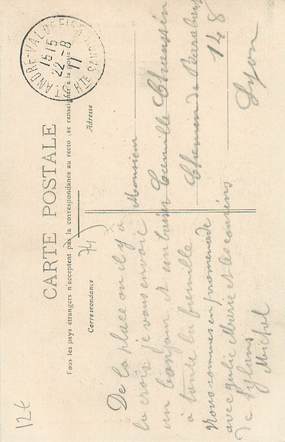 CARTE POSTALE
Tous les pays étrangers n'acceptent pas la correspondance au recto, se renseigner à la poste
Correspondance
Adresse
15 15
22 - 8
11
HTE
74
De la place où il y a
la croix je vous envoie
un bonjour et un baiser
à toute la famille
Nous sommes en promenade
avec Julie Marie et les cousins
de
Michel
Monsieur
Camille
Chemin de
148
Lyon
12€